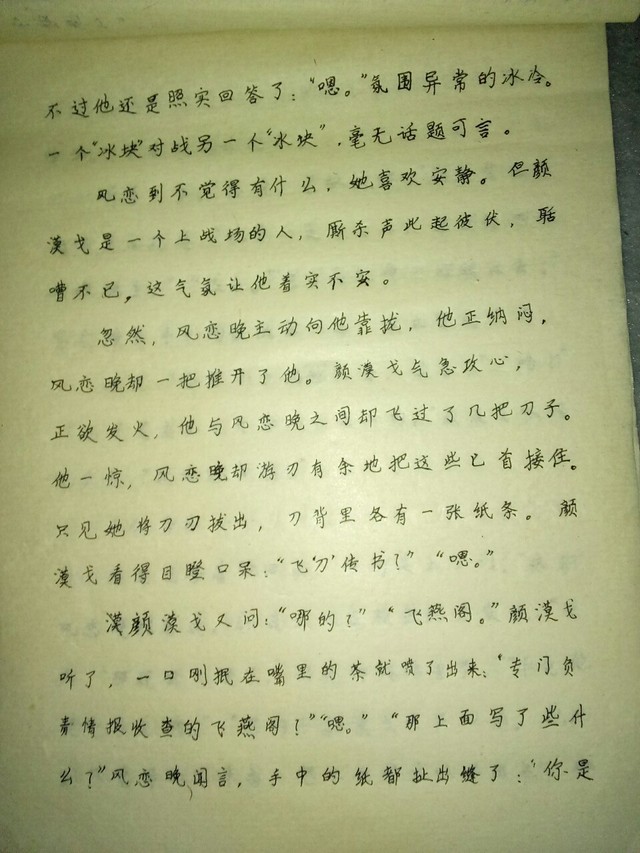 不过他还是照实回答了：“嗯。”氛围异常的冰冷。
一个“冰块”对战另一个“冰块”，毫无话题可言。
风恋到不觉得有什么，她喜欢安静。但颜
漠戈是一个上战场的人，厮杀声此起彼伏，聒
嘈不已，这气氛让他着实不安。
忽然，风恋晚主动向他靠拢，他正纳闷，
风恋晚却一把推开了他。颜漠戈气急攻心，
正欲发火，他与风恋晚之间却飞过了几把刀子。
他一惊，风恋晚却游刃有余地把这些匕首接住。
只见她将刀刃拔出，刀背里各有一张纸条。颜
漠戈看得目瞪口呆：“飞‘刀’传书？”“嗯。”
漠颜漠戈又问：“哪的？”“飞燕阁。”颜漠戈
听了，一口刚抿在嘴里的茶就喷了出来：“专门负
责情报收查的飞燕阁？”“嗯。”“那上面写了些什
么？”风恋晚闻言，手中的纸都扯出缝了：“你是